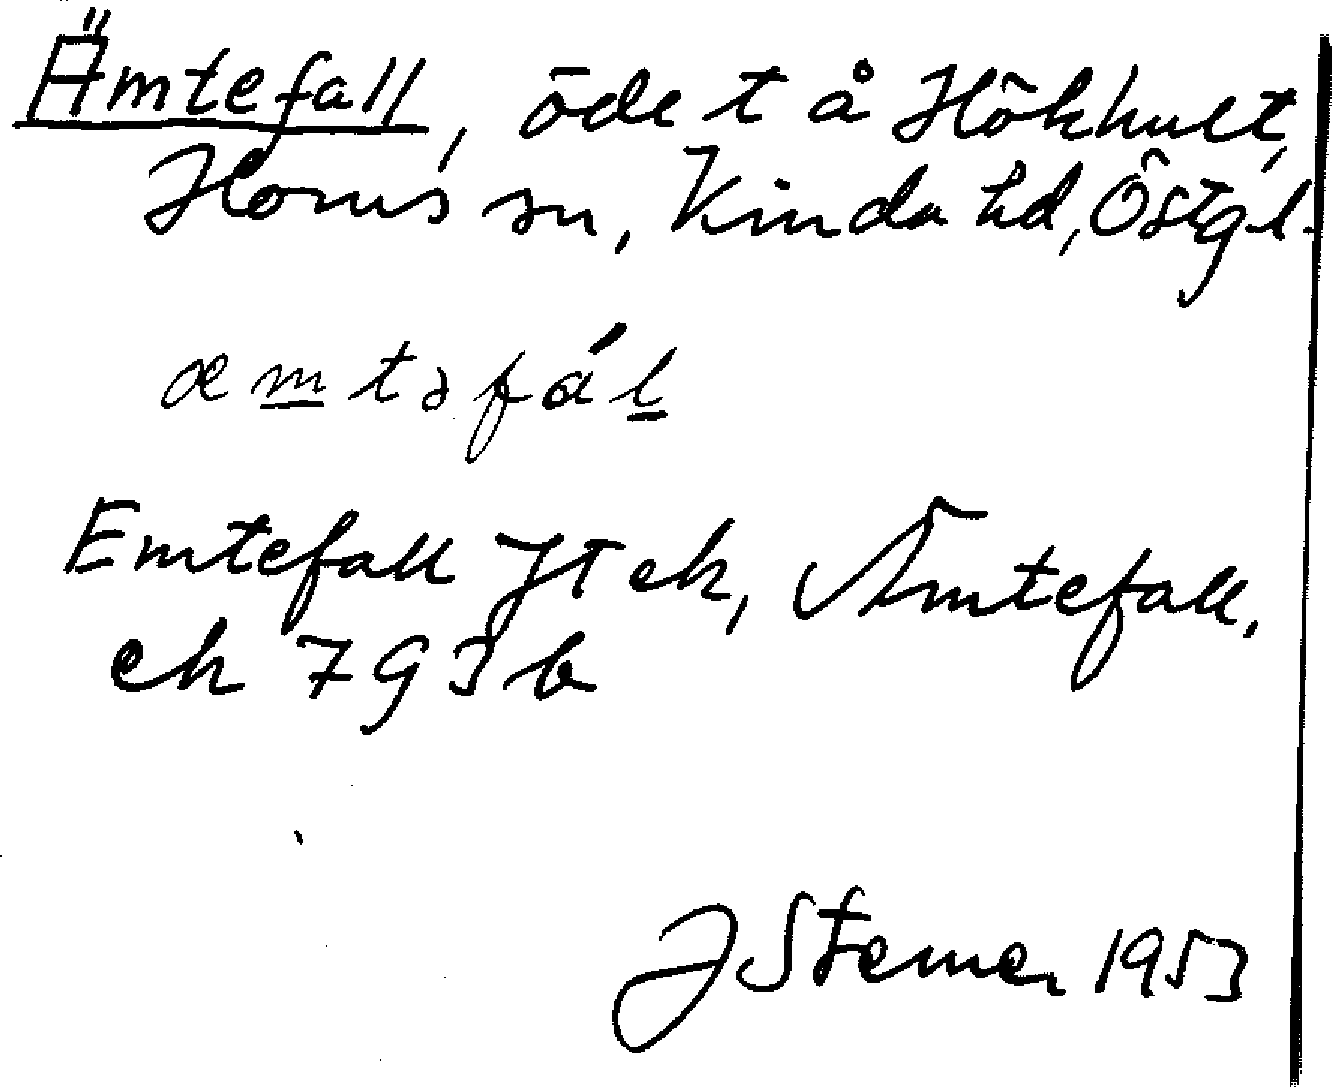 Ämtefall, öde t å Hökhult,
Horns sn, Kinda hd, Östgl.
æmtəfál
Emtefall JT ek, Ämtefall,
ek 793 b
J Sterner 1953